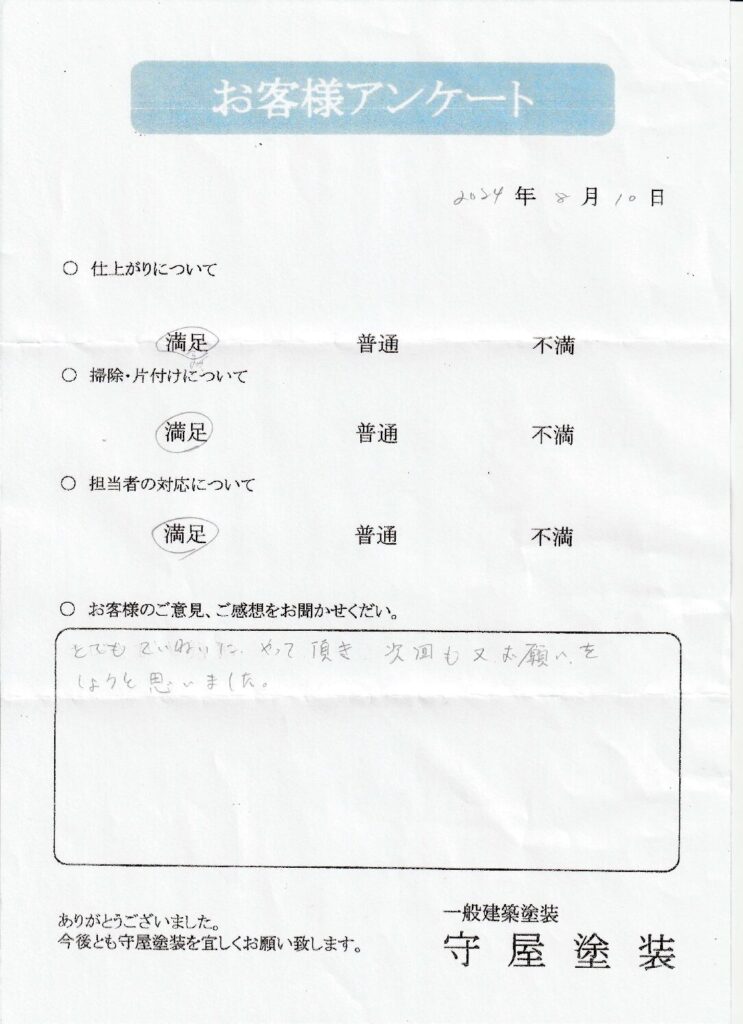 お客様アンケート
2024 年 8 月 10 日
○ 仕上がりについて
満足 普通 不満
○ 掃除・片付けについて
満足 普通 不満
○ 担当者の対応について
満足 普通 不満
○ お客様のご意見、ご感想をお聞かせくだい。
とてもていねいに、やって頂き、次回も又お願いを
しようと思いました。
ありがとうございました。
今後とも守屋塗装を宜しくお願い致します。
一般建築塗装
守屋塗装